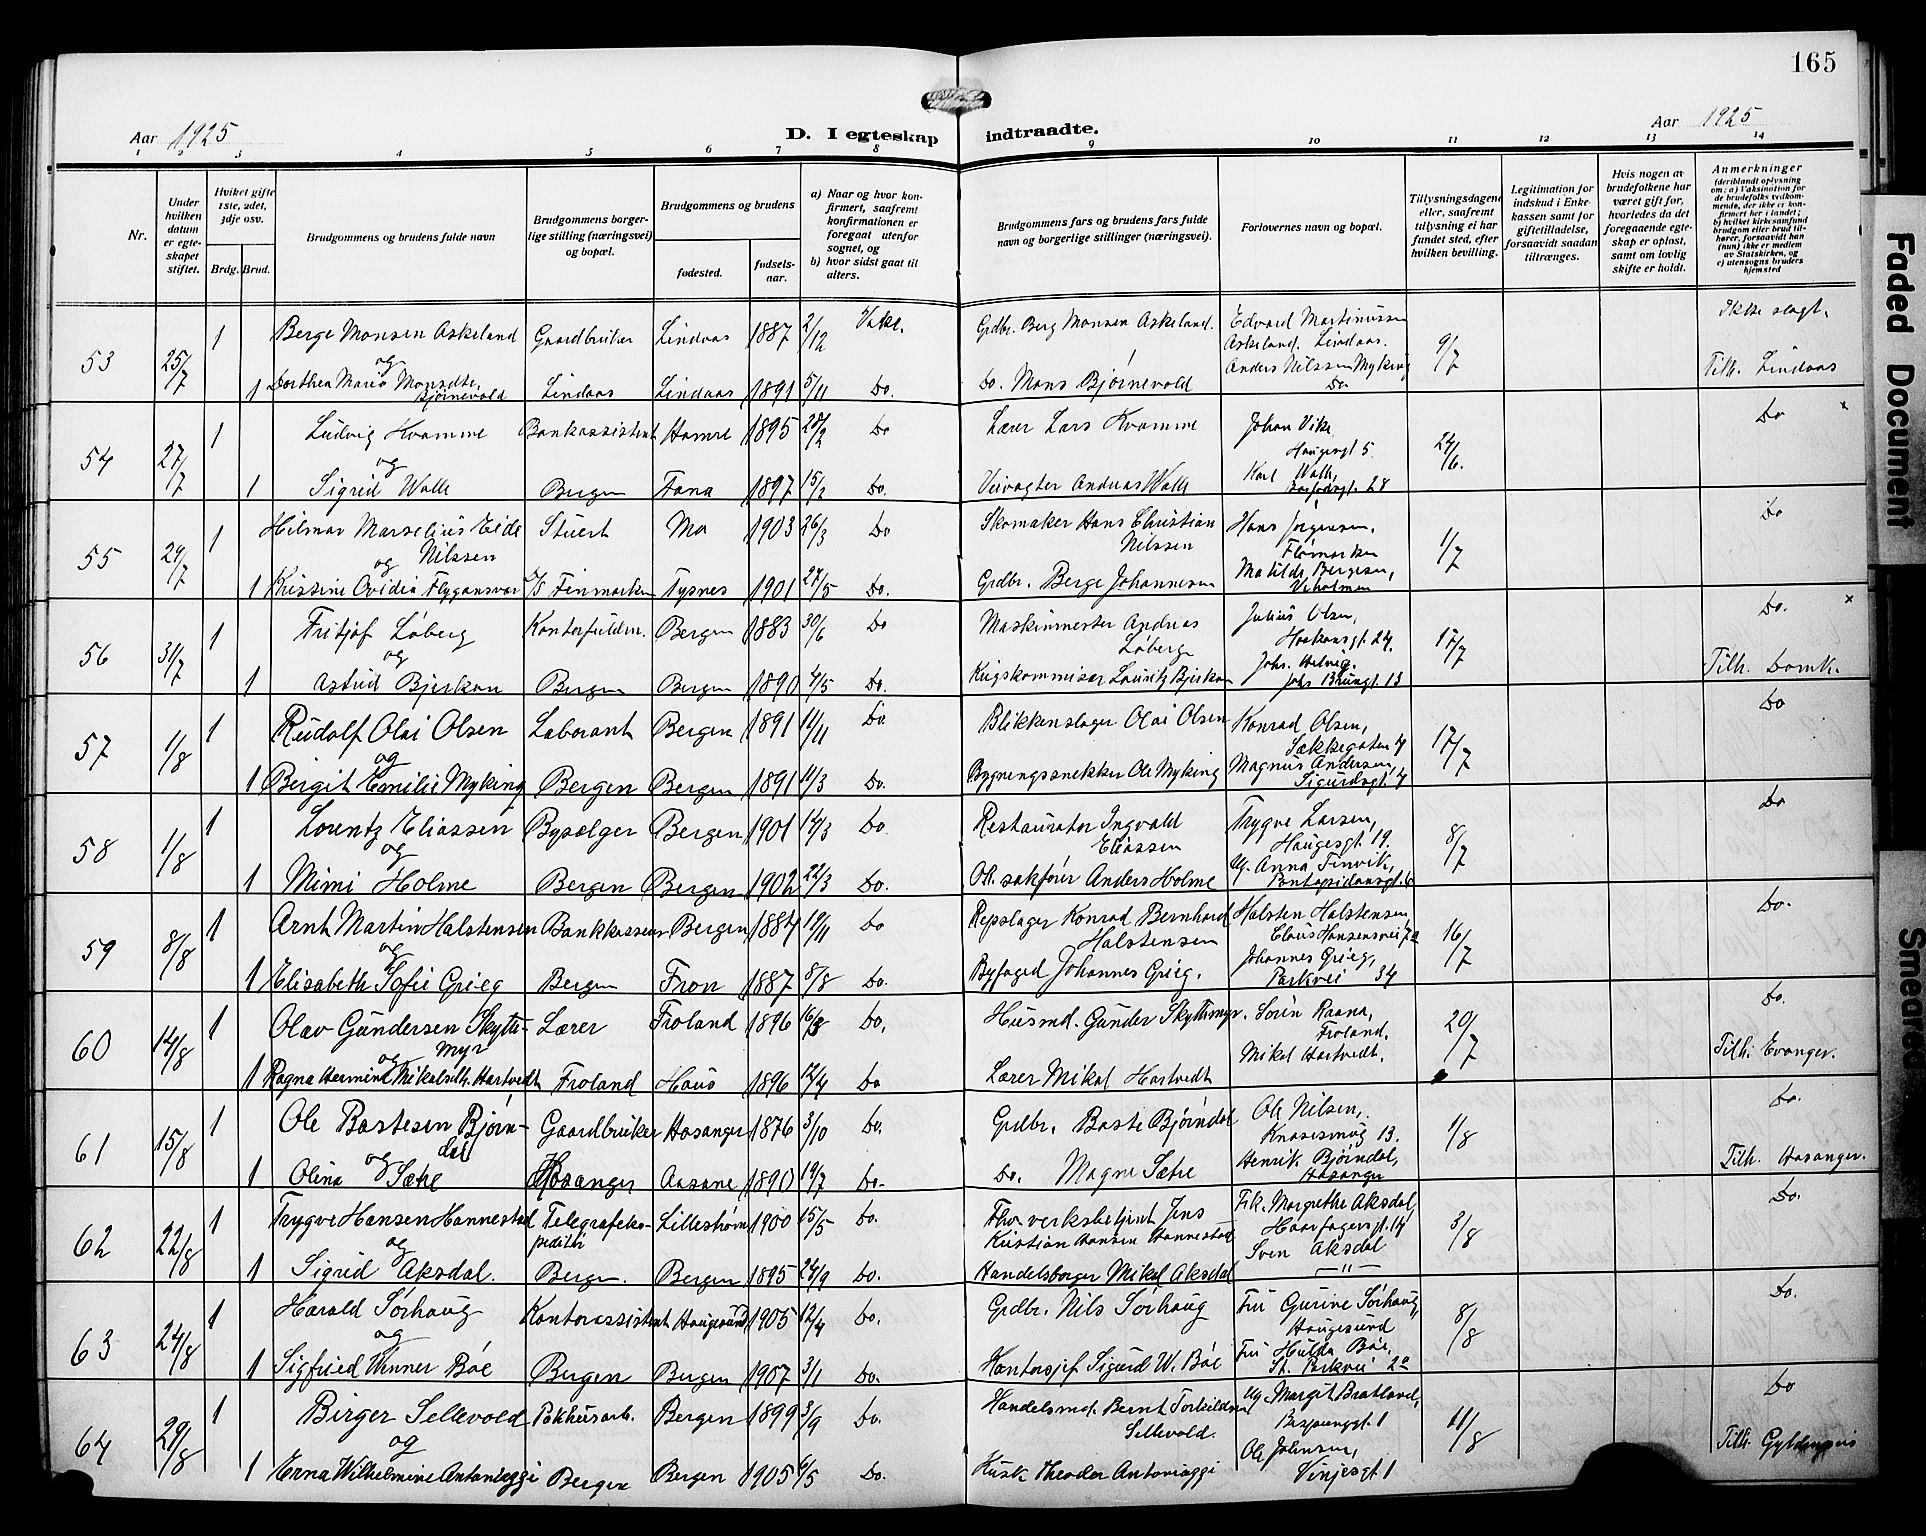 165
Aar 1925
D. I egteskap indtraadte.
Aar 1925
1 2 3 4 5 6 7 8 9 10 11 12 13 14
Nr.
Under hvilken datum er egteskapet stiftet.
Hvilket gifte 1ste, 2det, 3dje osv.
Brdg. Brud.
Brudgommens og brudens fulde navn
Brudgommens borgerlige stilling (næringsvei) og bopæl.
Brudgommens og brudens
fødested.
fødselsaar.
a) Naar og hvor konfirmert, saafremt konfirmationen er foregaat utenfor sognet, og
b) hvor sidst gaat til alters.
Brudgommens fars og brudens fars fulde navn og borgerlige stillinger (næringsvei).
Forlovernes navn og bopæl.
Tillysningsdagene eller, saafremt tillysning ei har fundet sted, efter hvilken bevilling.
Legitimation for indskud i Enkekassen samt for giftetilladelse, forsaavidt saadan tiltrænges.
Hvis nogen av brudefolkene har været gift før, hvorledes da det foregaaende egteskap er opløst, samt om lovlig skifte er holdt.
Anmerkninger (deriblandt oplysning om: a) Vaksination for de brudefolks vedkommende, der ikke er konfirmert her i landet; b) hvilket kirkesamfund brudgom eller brud tilhører, forsaavidt han (hun) ikke er medlem av Statskirken, og c) utensogns bruders hjemsted
53 25/7 1 Berge Monsen Askeland Gaardbruker Lindaas 1887 2/12 Grdbr. Berg Monsen Askeland. Edvard Martinussen Askeland. Lindaas. 9/7 Ikke slegt.
og
1 Dorthea Maria Monsdtr. Bjørnevold Lindaas Lindaas 1891 5/11 Do. Do. Mons Bjørnevold Anders Nilssen Myking Do Tilh. Lindaas
54 27/7 1 Ludvig Kvamme Bankassistent Hamre 1895 Do Lærer Lars Kvamme Johan Vike Haugesgt 5. 24/6. Do x
og
1 Sigrid Walle Bergen Fana 1897 15/2 Do. Veivogter Andreas Walle Karl Walle,
55 29/7 1 Hilmar Marselius Eide Nilssen Stuert Mo 1903 26/3 Do Skomaker Hans Christian Nilssen Hans Jørgensen, 1/7 Do
og
1 Kristine Ovidia Flygansvær D/S Finmarken Tysnes 1901 27/5 Do. Grdbr. Berge Johannesen Matilde Bergesen,
56 31/7 1 Fritjof Løberg Kontorfuldm. Bergen 1883 30/6 Do Maskinmester Andreas Løberg Julius Olsen, Haakonsgt. 24. 17/7 Do. x
og
1 Astrid Bjerkan Bergen Bergen 1890 4/5 Do. Krigskommisær Lauritz Bjerkan Johs. Helvig. Johs Brungt. 13 Tilh. Domk.
57 1/8 1 Rudolf Olai Olsen Laborant Bergen 1891 11/11 Do. Blikkenslager Olai Olsen Konrad Olsen, Sækkegaten 4 17/7 Do
og
1 Birgit Emilie Myking Bergen Bergen 1891 11/3 Do. Bygningssnekker Ole Myking Magnus Andersen, Sigurdsgt. 4
58 1/8 1 Lorentz Eliassen Bysælger Bergen 1901 14/3 Do. Restauratør Ingvald Eliassen Trygve Larsen, Haugesgt. 19. 8/7 Do
og
1 Mimi Holme Bergen Bergen 1902 22/3 Do. O.r. sakfører Anders Holme Anna Finvik, Pontopidansgt. 6
59 8/8 1 Arnt Martin Halstensen Bankkasserer Bergen 1884 19/11 Do Repslager Konrad Bernhard Halstensen Halsten Halstensen, Claus Hansensvei 7a 16/7 Do.
og
1 Elisabeth Sofie Grieg Bergen Fron 1887 8/8 Do. Byfoged Johannes Grieg. Johannes Grieg, Parkvei 34
60 14/8 1 Olav Gundersen Skyttemyr Lærer Froland 1896 Do. Husmd. Gunder Skyttmyr. Sørin Raana, Froland. 20/7 Do.
og
1 Ragna Hermine Mikalsdtr. Hartvedt Froland Haus 1896 12/4 Do Lærer Mikal Hartvedt Mikal Hartvedt. Tilh. Evanger.
61 15/8 1 Ole Bastesen Bjørndal Gaardbruker Hosanger 1876 3/10 Do. Grdbr. Baste Bjørndal Ole Nilsen, Knøsesmug 13. 1/8 Do.
og
1 Olina Sætre Hosanger Aasane 1890 19/7 Do. Do. Magne Sætre Henrik Bjørndal, Hosanger Tilh. Hosanger.
62 22/8 1 Trygve Hansen Hannestad Telegrafekspeditør 1900 15/5 Do. Kristian Hansen Hannestad Frk. Margrethe Aksdal, Haarfagersgt. 14 3/8 Do.
og
1 Sigrid Aksdal. Bergen. Bergen 1895 24/9 Do. Handelsborger Mikal Aksdal Sven Aksdal — " —
63 24/8 1 Harald Sørhaug Kontorassistent Haugesund 1905 12/4 Do. Grdbr. Nils Sørhaug Fru Gurine Sørhaug, Haugesund 8/8 Do.
og
1 Sigfried Winner Bøe Bergen Bergen 1907 3/1 Do. Kontorsjef Sigurd W. Bøe Fru Hulda Bøe, St. Parkvei 2a
64 29/8 1 Birger Sellevold Pakhusarb. Bergen 1899 3/9 Do. Handelsmd. Bernt Torkildsen Sellevold. Margit Bratland, 11/8 Do
og
1 Erna Wilhelmine Antoniaggi Bergen Bergen 1905 Do. Kusk Theodor Antoniaggi Ole Johnsen, Vinjesgt. 1
Faded Document
Smeared